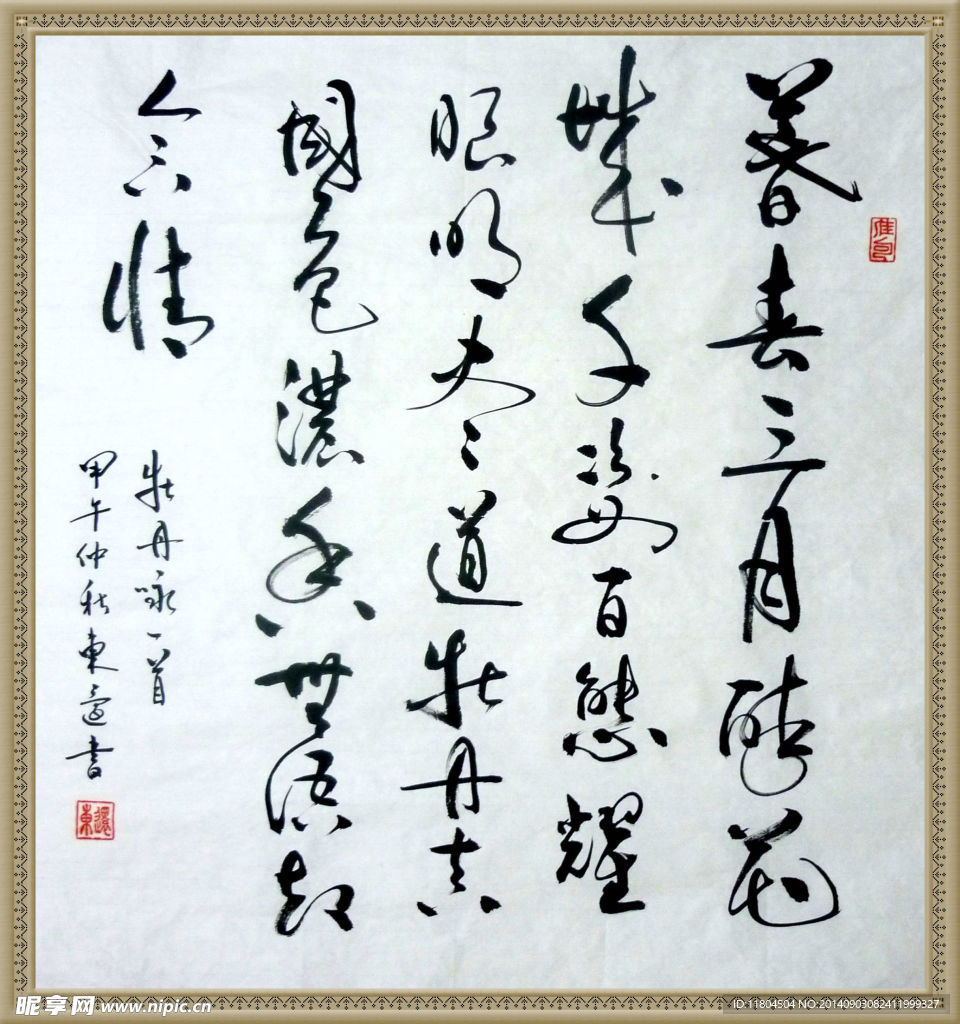 暮春三月醉花
城千姿百態耀
眼明尽道牡丹真
國色濃香無語却
含情
牡丹咏一首
甲午仲秋東書
昵享网 www.nipic.cn
ID:11804504 NO:20140903082411999327